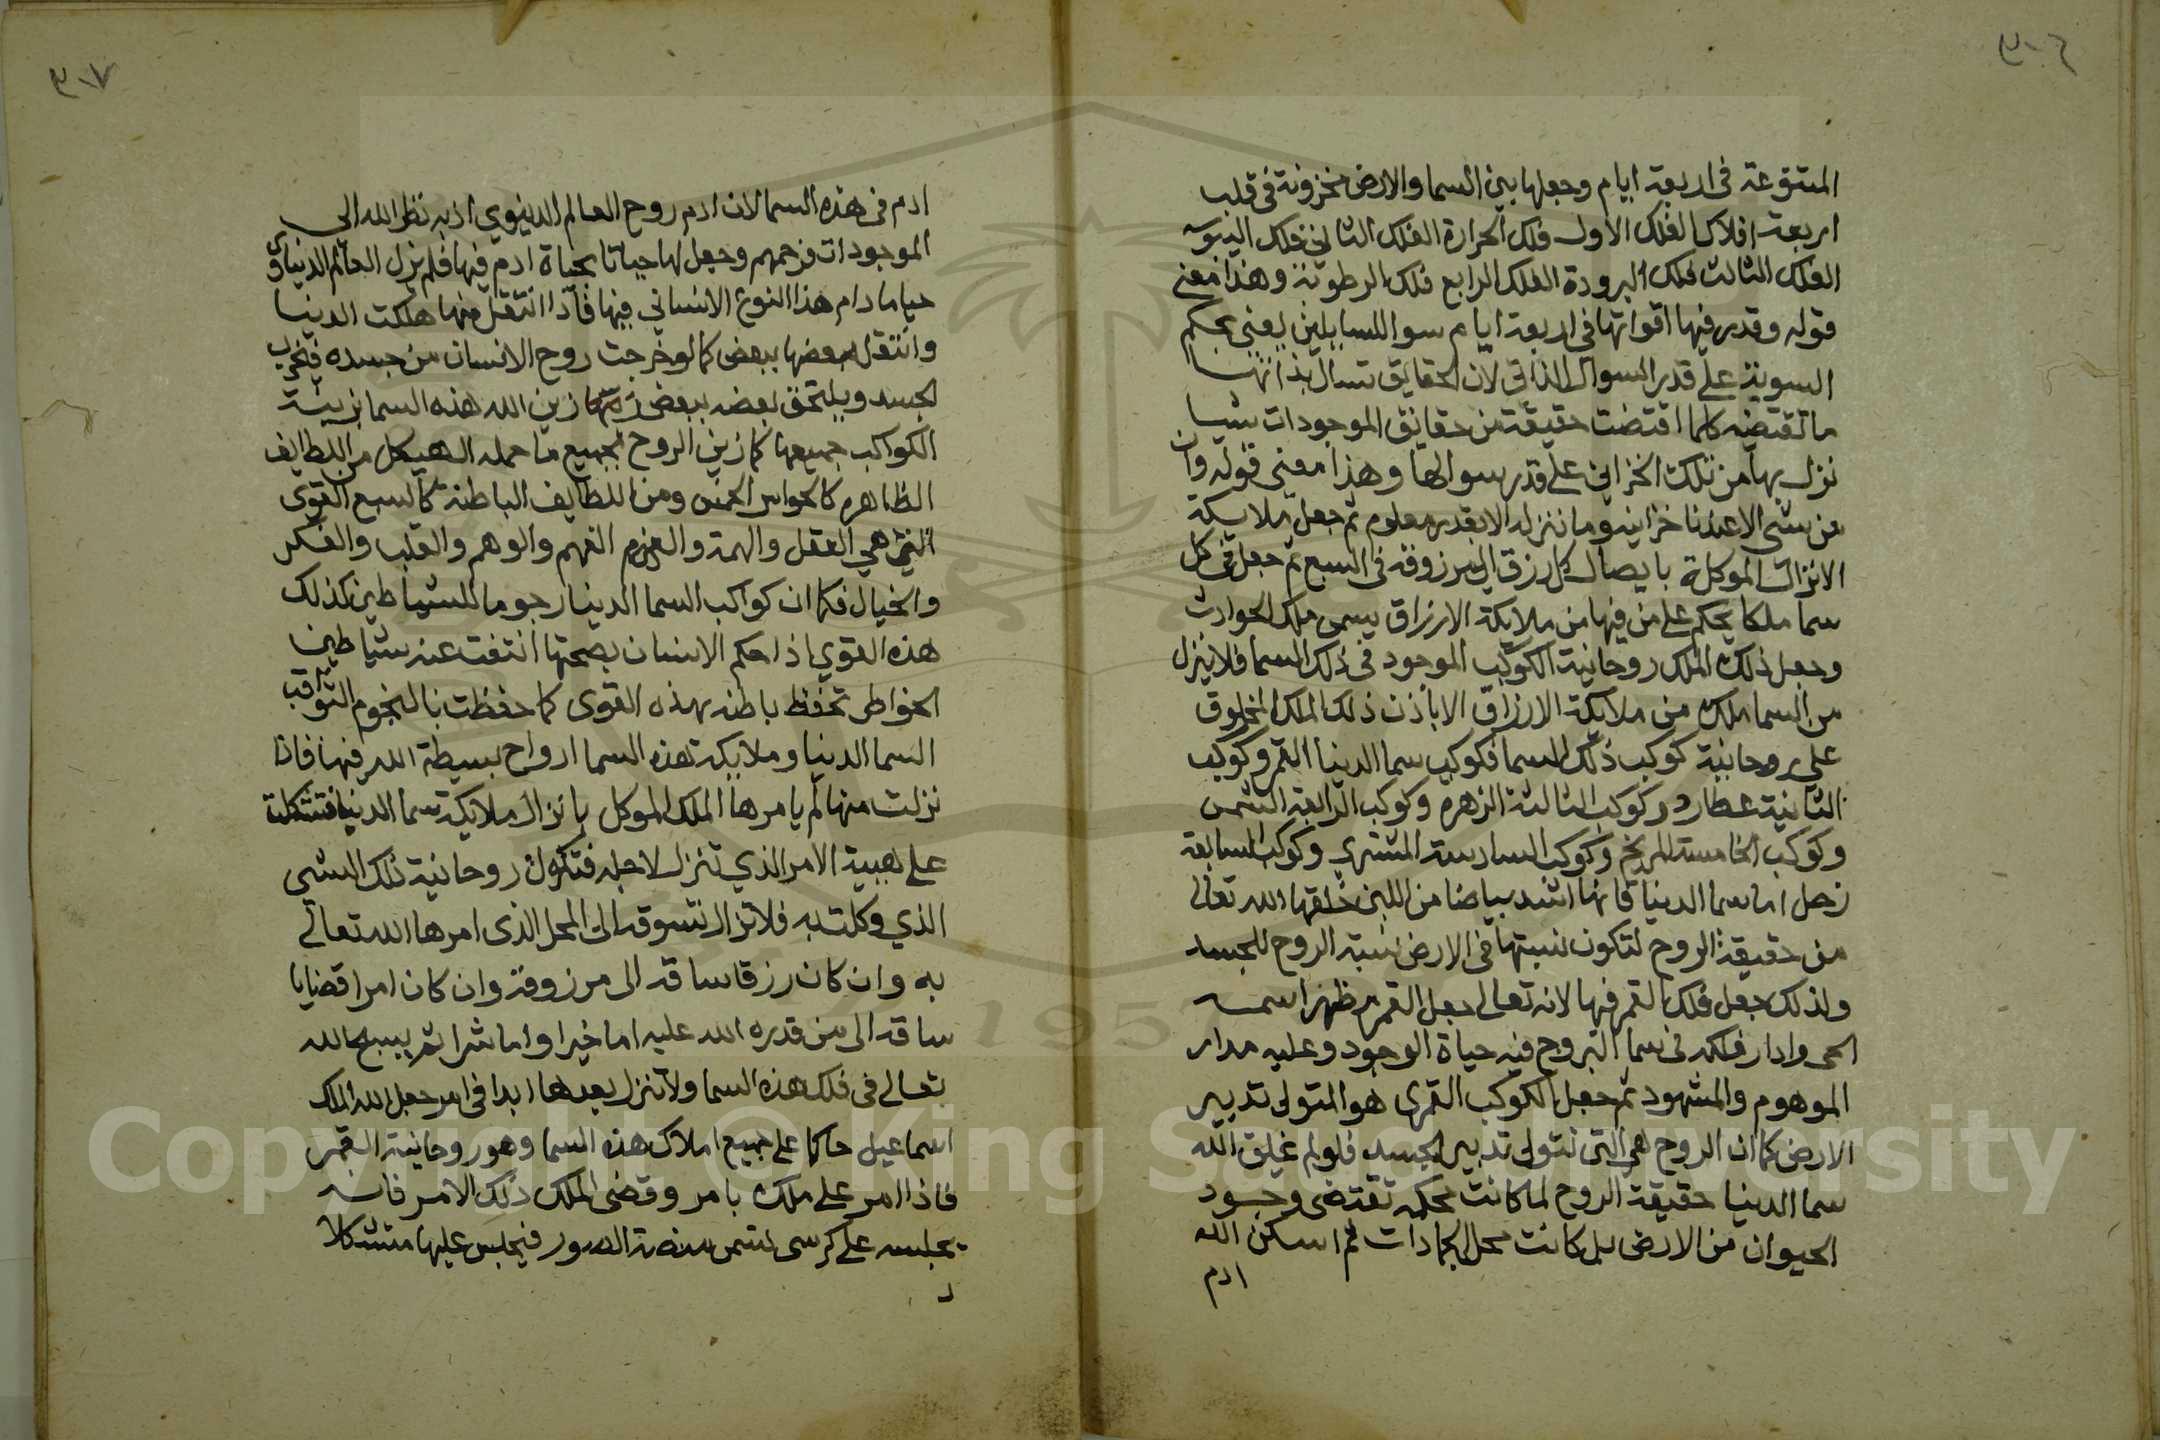 ٣٠٦
المتنوعة فى اربعة ايام وجعلها بين السما والارض مخزونة فى قلب
اربعة افلاك الفلك الاول فلك الحرارة الفلك الثانى فلك اليبوسه
الفلك الثالث فلك البرودة الفلك الرابع فلك الرطوبة وهذا معنى
قوله وقدر فيها اقواتها فى اربعة ايام سوا للسايلين يعنى بحكم
السوية على قدر السوال الذاتى لان الحقايق تسال بذاتها
ما تقتضيه كلما اقتضت حقيقة من حقايق الموجودات شيا
نزل بها من تلك الخزاين على قدر سوالها وهذا معنى قوله وان
من شى الا عندنا خزاينه وما ننزله الا بقدر معلوم ثم جعل ملايكة
الانزال الموكلة بايصال كل رزق الى مرزوقه فى السبع ثم جعل فى كل
سما ملكا يحكم على من فيها من ملايكة الارزاق يسمى ملك الحوادث
وجعل ذلك الملك روحانية الكوكب الموجود فى ذلك السما فلا ينزل
من السما ملك من ملايكة الارزاق الا باذن ذلك الملك المخلوق
على روحانية كوكب ذلك السما فكوكب سما الدنيا القمر وكوكب
الثانية عطارد وكوكب الثالثة الزهره وكوكب الرابعة الشمس
وكوكب الخامسة المريخ وكوكب السادسة المشترى وكوكب السابعة
زحل اما سما الدنيا فانها اشد بياضا من اللبن خلقها الله تعالى
من حقيقة الروح لتكون نسبتها فى الارض نسبة الروح للجسد
ولذلك جعل فلك القمر فيها لانه تعالى جعل القمر مظهر اسمه
الحى وادار فلكه فى سما الروح فيه حياة الوجود وعليه مدار
الموهوم والمشهود ثم جعل الكوكب القمرى هو المتولى تدبير
الارض كما ان الروح هى التى تتولى تدبير الجسد فلو لم يخلق الله
سما الدنيا حقيقة الروح لما كانت محكمه تقتضى وجود
الحيوان من الارض بل كانت محل الجمادات ثم اسكن الله
ادم
٣٠٧
ادم فى هذه السما لان ادم روح العالم الدينوي اذ به نظر الله الى
الموجودات فرحمهم وجعل لها حياتا بحياة ادم فيها فلم يزل العالم الدنياوى
حيا ما دام هذا النوع الانسانى فيها فاذا انتقل منها هلكت الدنيا
وانتقل بعضها ببعض كما لو خرجت روح الانسان من جسده فيخرب
الجسد ويلتحق بعضه ببعض زين الله هذه السما بزينة
الكواكب جميعها كما زين الروح بجميع ما حمله الهيكل من اللطايف
الظاهره كالحواس الخمس ومن اللطايف الباطنة كالسبع القوى
التى هى العقل والهمة والفهم والوهم والقلب والفكر
والخيال فكما ان كواكب السما الدنيا رجوما للشياطين كذلك
هذه القوي اذا حكم الانسان بصحتها انتفت عنه شياطين
الخواطر تحفظ باطنه بهذه القوى كما حفظت بالنجوم الثواقب
السما الدنيا وملايكة هذه السما ارواح بسيطة لله فيها فاذا
نزلت منها لم يامرها الملك الموكل بانزال ملايكة سما الدنيا فتشكلت
على هيية الامر الذي تنزل لاجله فتكون روحانية ذلك الشى
الذي وكلت به فلا تزال تسوقه الى المحل الذى امرها الله تعالى
به وان كان رزقا ساقه الى مرزوقه وان كان امرا قضايا
ساقه الى من قدره الله عليه اما خيرا واما شرا ثم يسبح الله
تعالى فى فلك هذه السما ولا تنزل بعدها ابدا فى امر جعل الله الملك
اسماعيل حاكما على جميع املاك هذه السما وهو روحانية القمر
فاذا امر على ملك بامر وقضى الملك ذلك الامر فانه
يجلسه على كرسى تسمى منصة الصور فيجلس عليها متشكلا
Copyright © King Saud University
1957